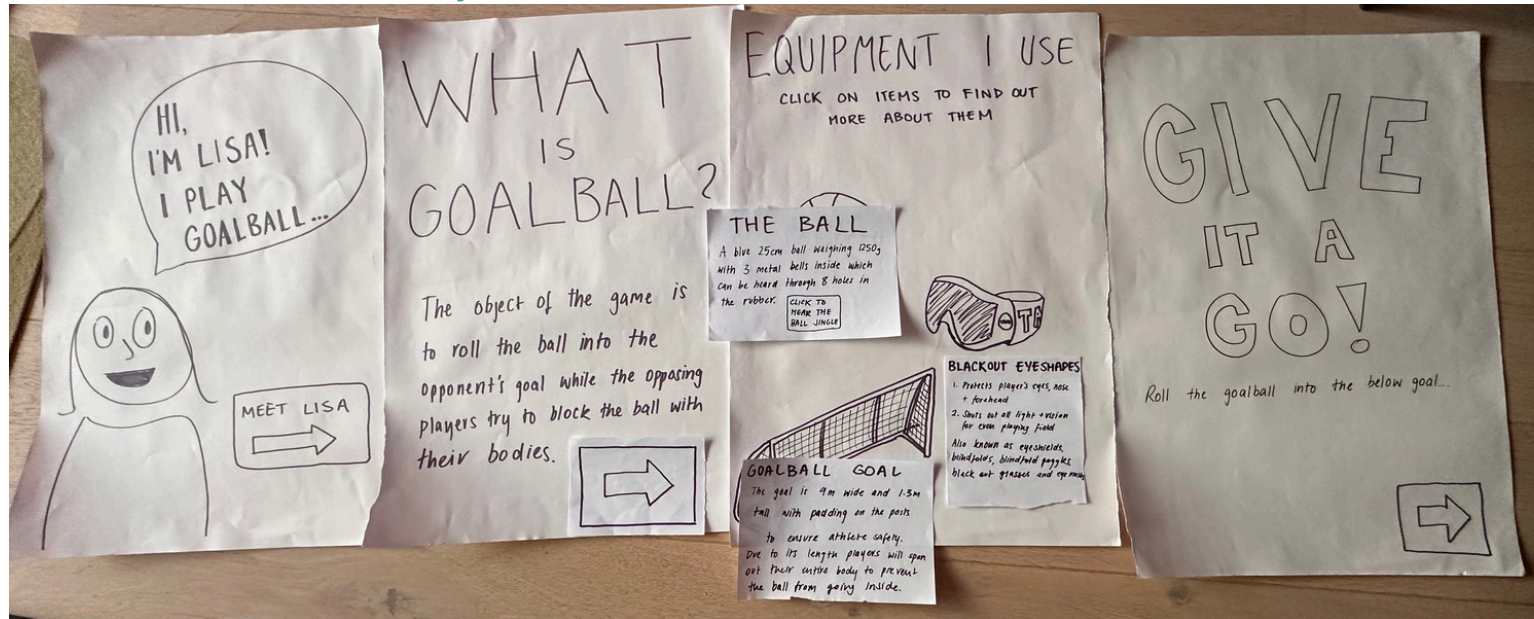 HI,
I'M LISA!
I PLAY
GOALBALL...
MEET LISA
WHAT
IS
GOALBALL?
The object of the game is
to roll the ball into the
opponent's goal while the opposing
players try to block the ball with
their bodies.
EQUIPMENT I USE
CLICK ON ITEMS TO FIND OUT
MORE ABOUT THEM
THE BALL
A blue 25cm ball weighing 1250g
with 3 metal bells inside which
can be heard through 8 holes in
the rubber.
CLICK TO
HEAR THE
BALL JINGLE
BLACKOUT EYESHAPES
1. Protects player's eyes, nose
+ forehead
2. Shuts out all light + vision
for even playing field
Also known as eyeshields,
blindfolds, blindfold goggles
black out glasses and eye masks
GOALBALL GOAL
The goal is 9m wide and 1.3m
tall with padding on the posts
to ensure athlete safety.
Due to its length players will span
out their entire body to prevent
the ball from going inside.
GIVE
IT A
GO!
Roll the goalball into the below goal...